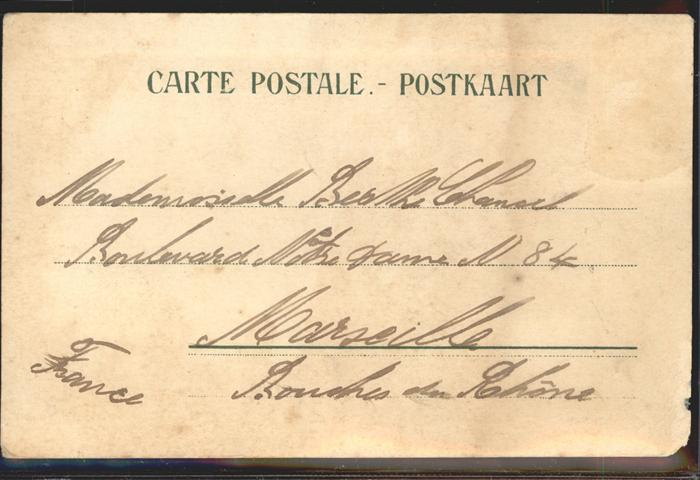 CARTE POSTALE.- POSTKAART
Mademoiselle Berthe Chancel
Boulevard Notre Dame N 84
Marseille
Bouches du Rhône
France